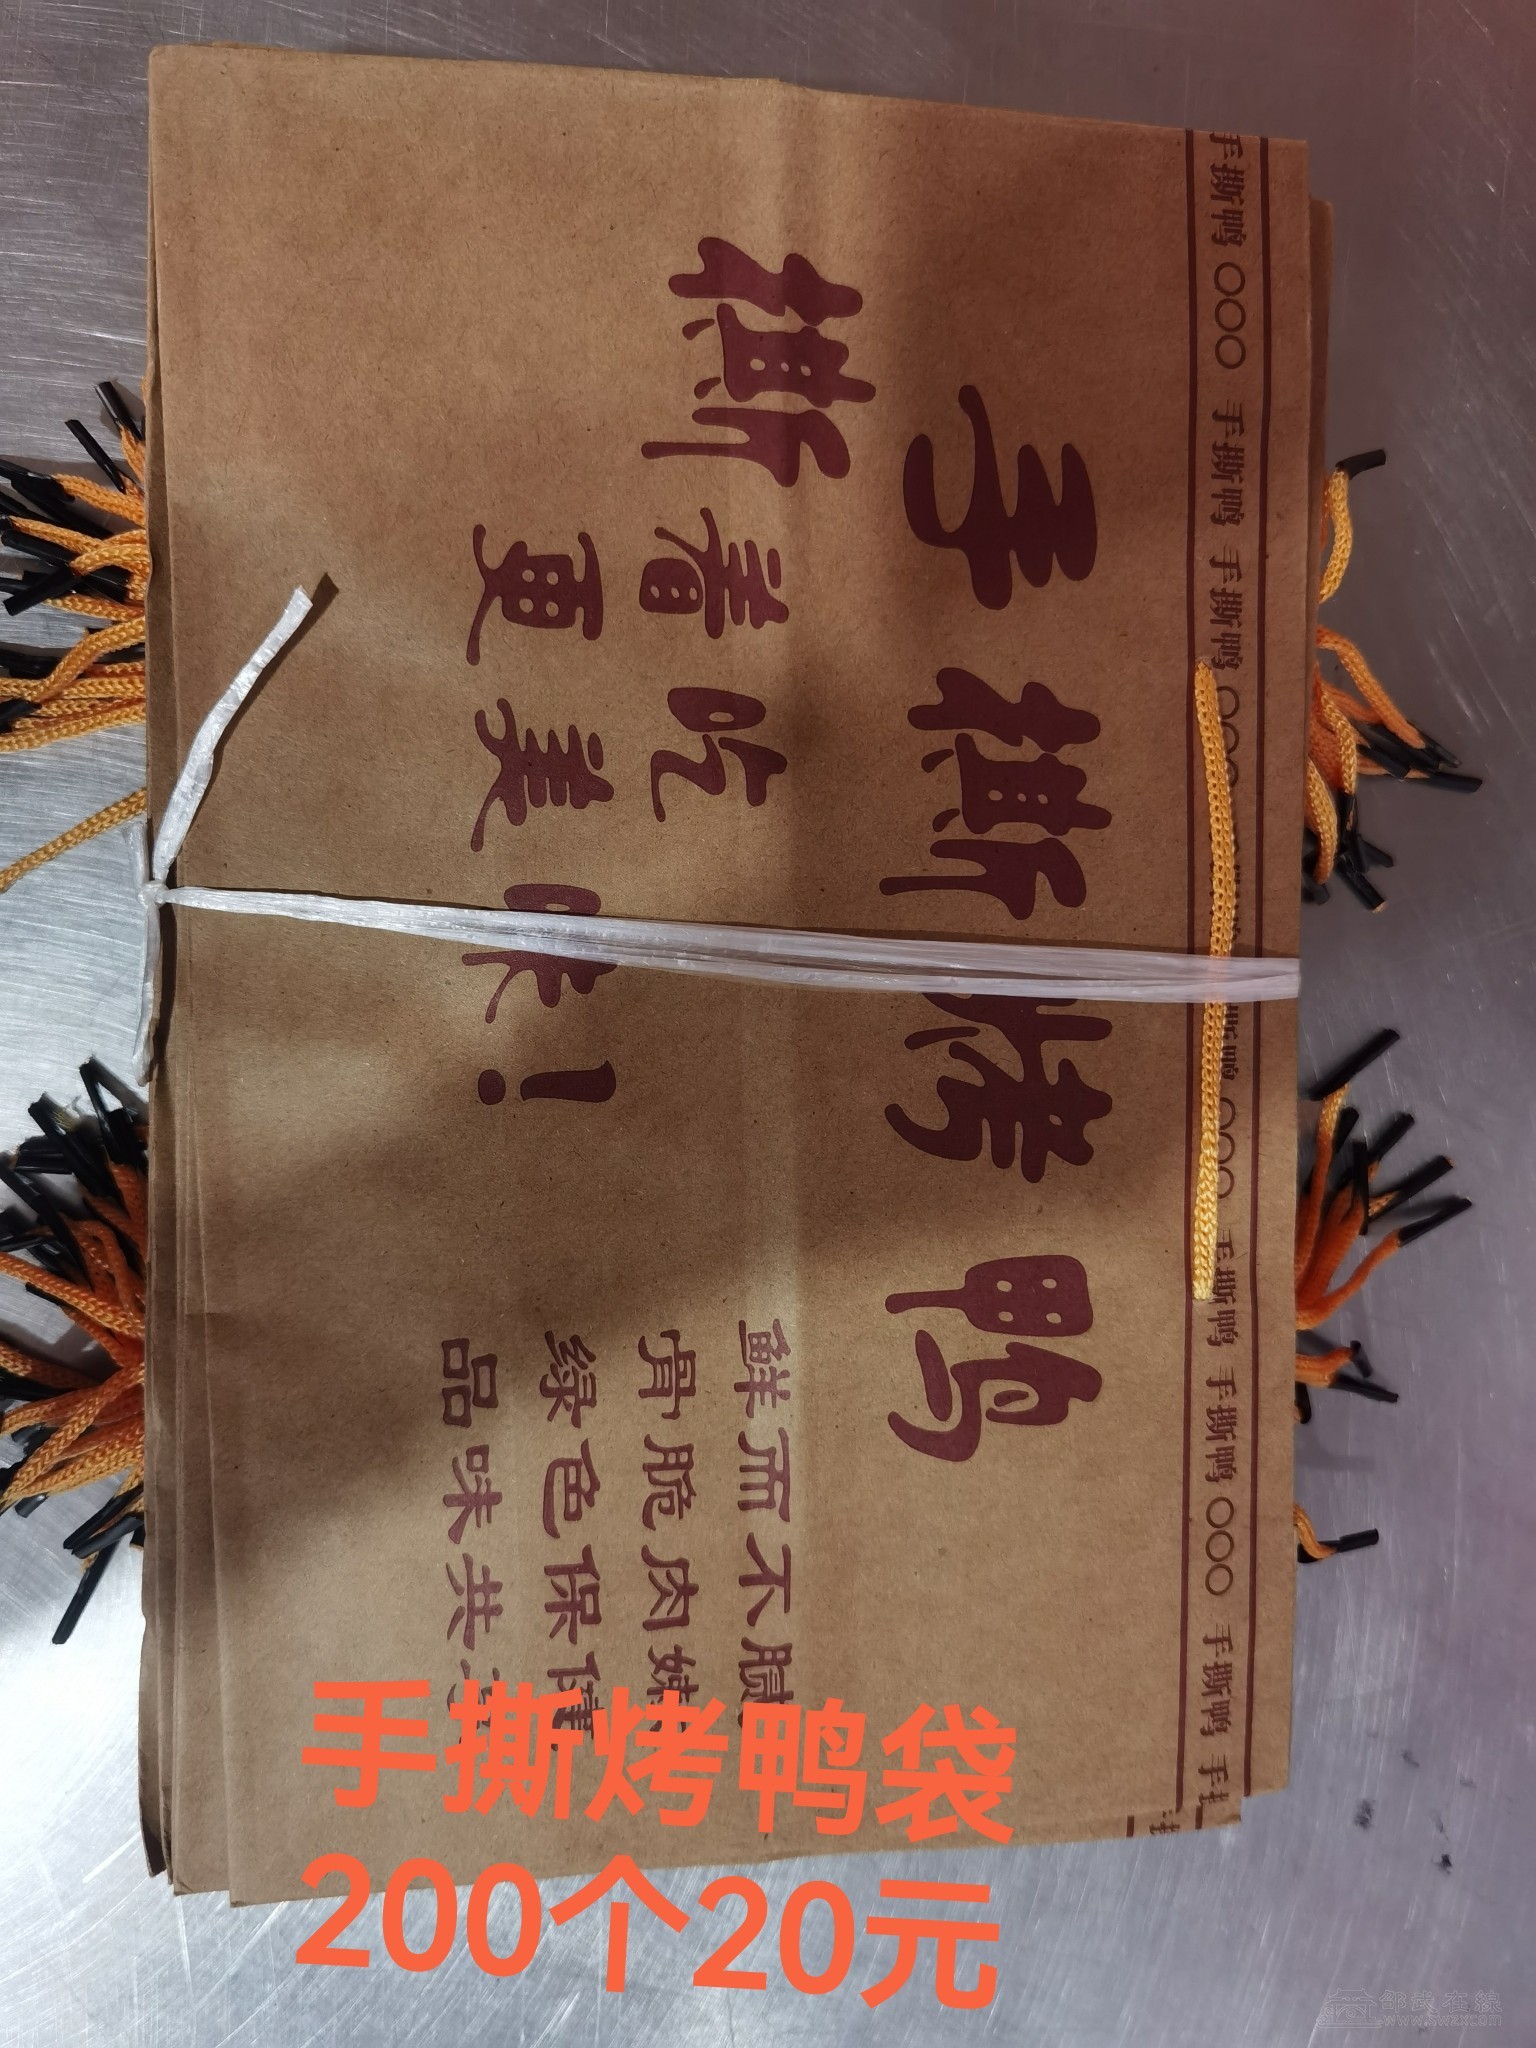 手撕鸭 ○○○ 手撕鸭 手撕鸭 ○○○ 撕鸭 ○○○ 手撕鸭 手撕鸭 ○○○ 手撕鸭 手
手撕烤鸭
撕着吃
更美味!
鲜而不腻
骨脆肉嫩
绿色保健
品味共享
手撕烤鸭袋
200个20元
邵武在線
www.swzx.com